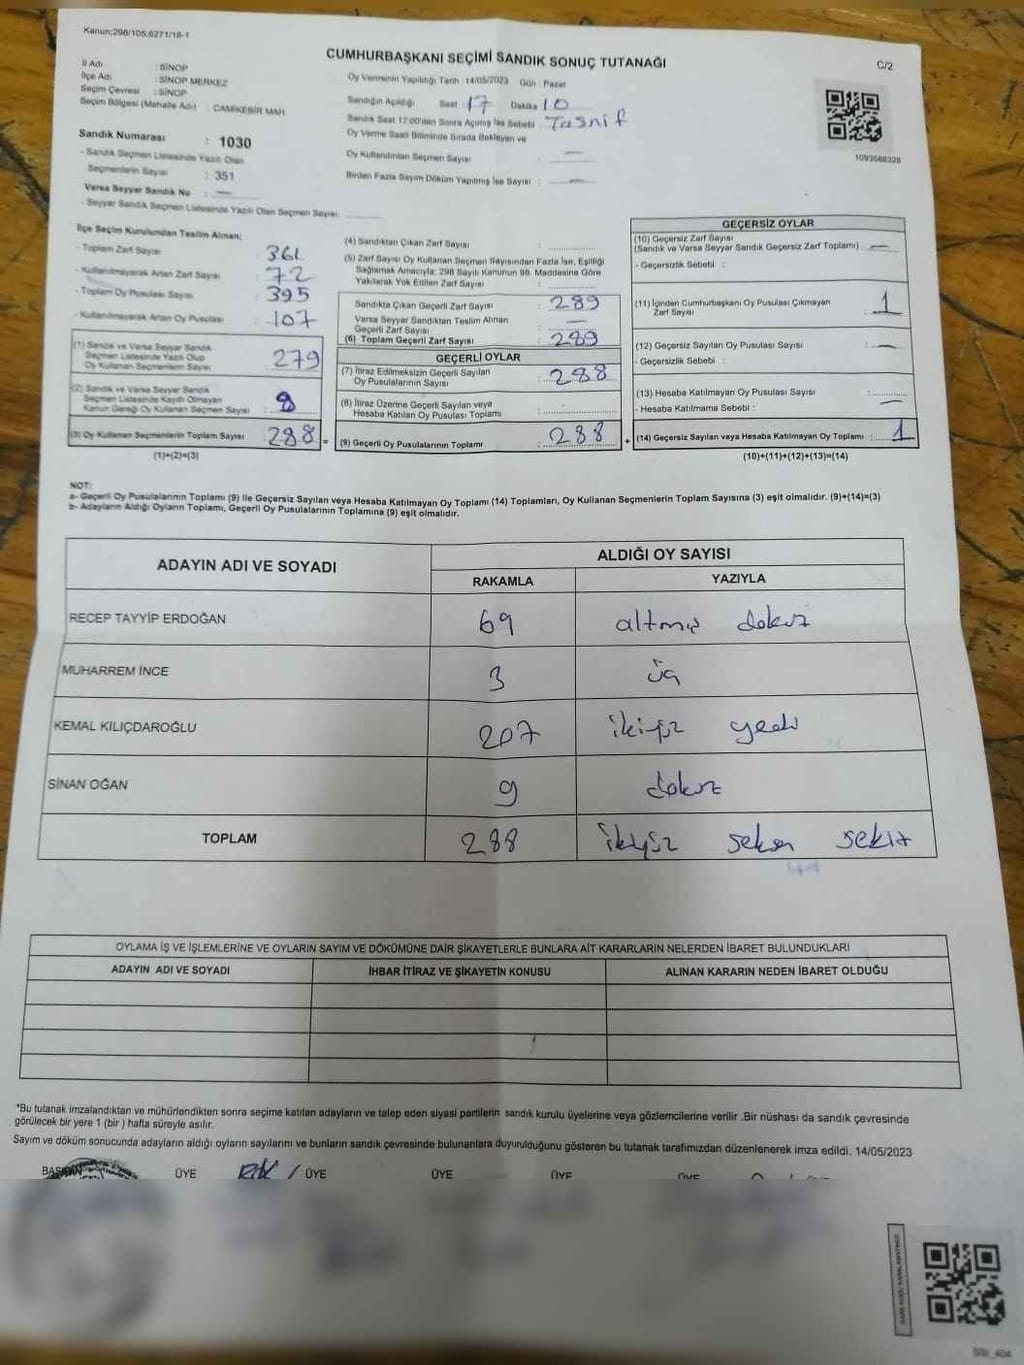 Kanun;298/105;6271/18-1
CUMHURBAŞKANI SEÇİMİ SANDIK SONUÇ TUTANAĞI
C/2
İl Adı : SİNOP
İlçe Adı : SİNOP MERKEZ
Seçim Çevresi : SİNOP
Seçim Bölgesi (Mahalle Adı) : CAMİKEBİR MAH.
Sandık Numarası : 1030
- Sandık Seçmen Listesinde Yazılı Olan
Seçmenlerin Sayısı : 351
Varsa Seyyar Sandık No : —
- Seyyar Sandık Seçmen Listesinde Yazılı Olan Seçmen Sayısı:
Oy Vermenin Yapıldığı Tarih : 14/05/2023 Gün : Pazar
Sandığın Açıldığı Saat : 17 Dakika : 10
Sandık Saat 17:00'den Sonra Açılmış İse Sebebi : Tasnif
Oy Verme Saati Bitiminde Sırada Bekleyen ve
Oy Kullandırılan Seçmen Sayısı : —
Birden Fazla Sayım Döküm Yapılmış İse Sayısı : —
1093568328
İlçe Seçim Kurulundan Teslim Alınan;
- Toplam Zarf Sayısı : 361
- Kullanılmayarak Artan Zarf Sayısı : 72
- Toplam Oy Pusulası Sayısı : 395
- Kullanılmayarak Artan Oy Pusulası : 107
(1) Sandık ve Varsa Seyyar Sandık
Seçmen Listesinde Yazılı Olup
Oy Kullanan Seçmenlerin Sayısı : 279
(2) Sandık ve Varsa Seyyar Sandık
Seçmen Listesinde Kayıtlı Olmayan
Kanun Gereği Oy Kullanan Seçmen Sayısı :
(3) Oy Kullanan Seçmenlerin Toplam Sayısı : 288
(1)+(2)=(3)
(4) Sandıktan Çıkan Zarf Sayısı :
(5) Zarf Sayısı Oy Kullanan Seçmen Sayısından Fazla İse, Eşitliği
Sağlamak Amacıyla; 298 Sayılı Kanunun 98. Maddesine Göre
Yakılarak Yok Edilen Zarf Sayısı :
Sandıkta Çıkan Geçerli Zarf Sayısı : 289
Varsa Seyyar Sandıktan Teslim Alınan
Geçerli Zarf Sayısı : —
(6) Toplam Geçerli Zarf Sayısı : 289
GEÇERLİ OYLAR
(7) İtiraz Edilmeksizin Geçerli Sayılan
Oy Pusulalarının Sayısı : 288
(8) İtiraz Üzerine Geçerli Sayılan veya
Hesaba Katılan Oy Pusulası Toplamı :
= (9) Geçerli Oy Pusulalarının Toplamı : 288
GEÇERSİZ OYLAR
(10) Geçersiz Zarf Sayısı
(Sandık ve Varsa Seyyar Sandık Geçersiz Zarf Toplamı) : —
- Geçersizlik Sebebi :
(11) İçinden Cumhurbaşkanı Oy Pusulası Çıkmayan
Zarf Sayısı : 1
(12) Geçersiz Sayılan Oy Pusulası Sayısı : —
- Geçersizlik Sebebi :
(13) Hesaba Katılmayan Oy Pusulası Sayısı :
- Hesaba Katılmama Sebebi : —
+ (14) Geçersiz Sayılan veya Hesaba Katılmayan Oy Toplamı : 1
(10)+(11)+(12)+(13)=(14)
NOT:
a- Geçerli Oy Pusulalarının Toplamı (9) ile Geçersiz Sayılan veya Hesaba Katılmayan Oy Toplamı (14) Toplamları, Oy Kullanan Seçmenlerin Toplam Sayısına (3) eşit olmalıdır. (9)+(14)=(3)
b- Adayların Aldığı Oyların Toplamı, Geçerli Oy Pusulalarının Toplamına (9) eşit olmalıdır.
ADAYIN ADI VE SOYADI
ALDIĞI OY SAYISI
RAKAMLA YAZIYLA
RECEP TAYYİP ERDOĞAN 69 altmış dokuz
MUHARREM İNCE 3 üç
KEMAL KILIÇDAROĞLU 207 ikiyüz yedi
SİNAN OĞAN 9 dokuz
TOPLAM 288 ikiyüz seksen sekiz
OYLAMA İŞ VE İŞLEMLERİNE VE OYLARIN SAYIM VE DÖKÜMÜNE DAİR ŞİKAYETLERLE BUNLARA AİT KARARLARIN NELERDEN İBARET BULUNDUKLARI
ADAYIN ADI VE SOYADI İHBAR İTİRAZ VE ŞİKAYETİN KONUSU ALINAN KARARIN NEDEN İBARET OLDUĞU
*Bu tutanak imzalandıktan ve mühürlendikten sonra seçime katılan adayların ve talep eden siyasi partilerin sandık kurulu üyelerine veya gözlemcilerine verilir .Bir nüshası da sandık çevresinde
görülecek bir yere 1 (bir ) hafta süreyle asılır.
Sayım ve döküm sonucunda adayların aldığı oyların sayılarını ve bunların sandık çevresinde bulunanlara duyurulduğunu gösteren bu tutanak tarafımızdan düzenlenerek imza edildi. 14/05/2023
BAŞKAN ÜYE ÜYE ÜYE ÜYE ÜYE ÜYE